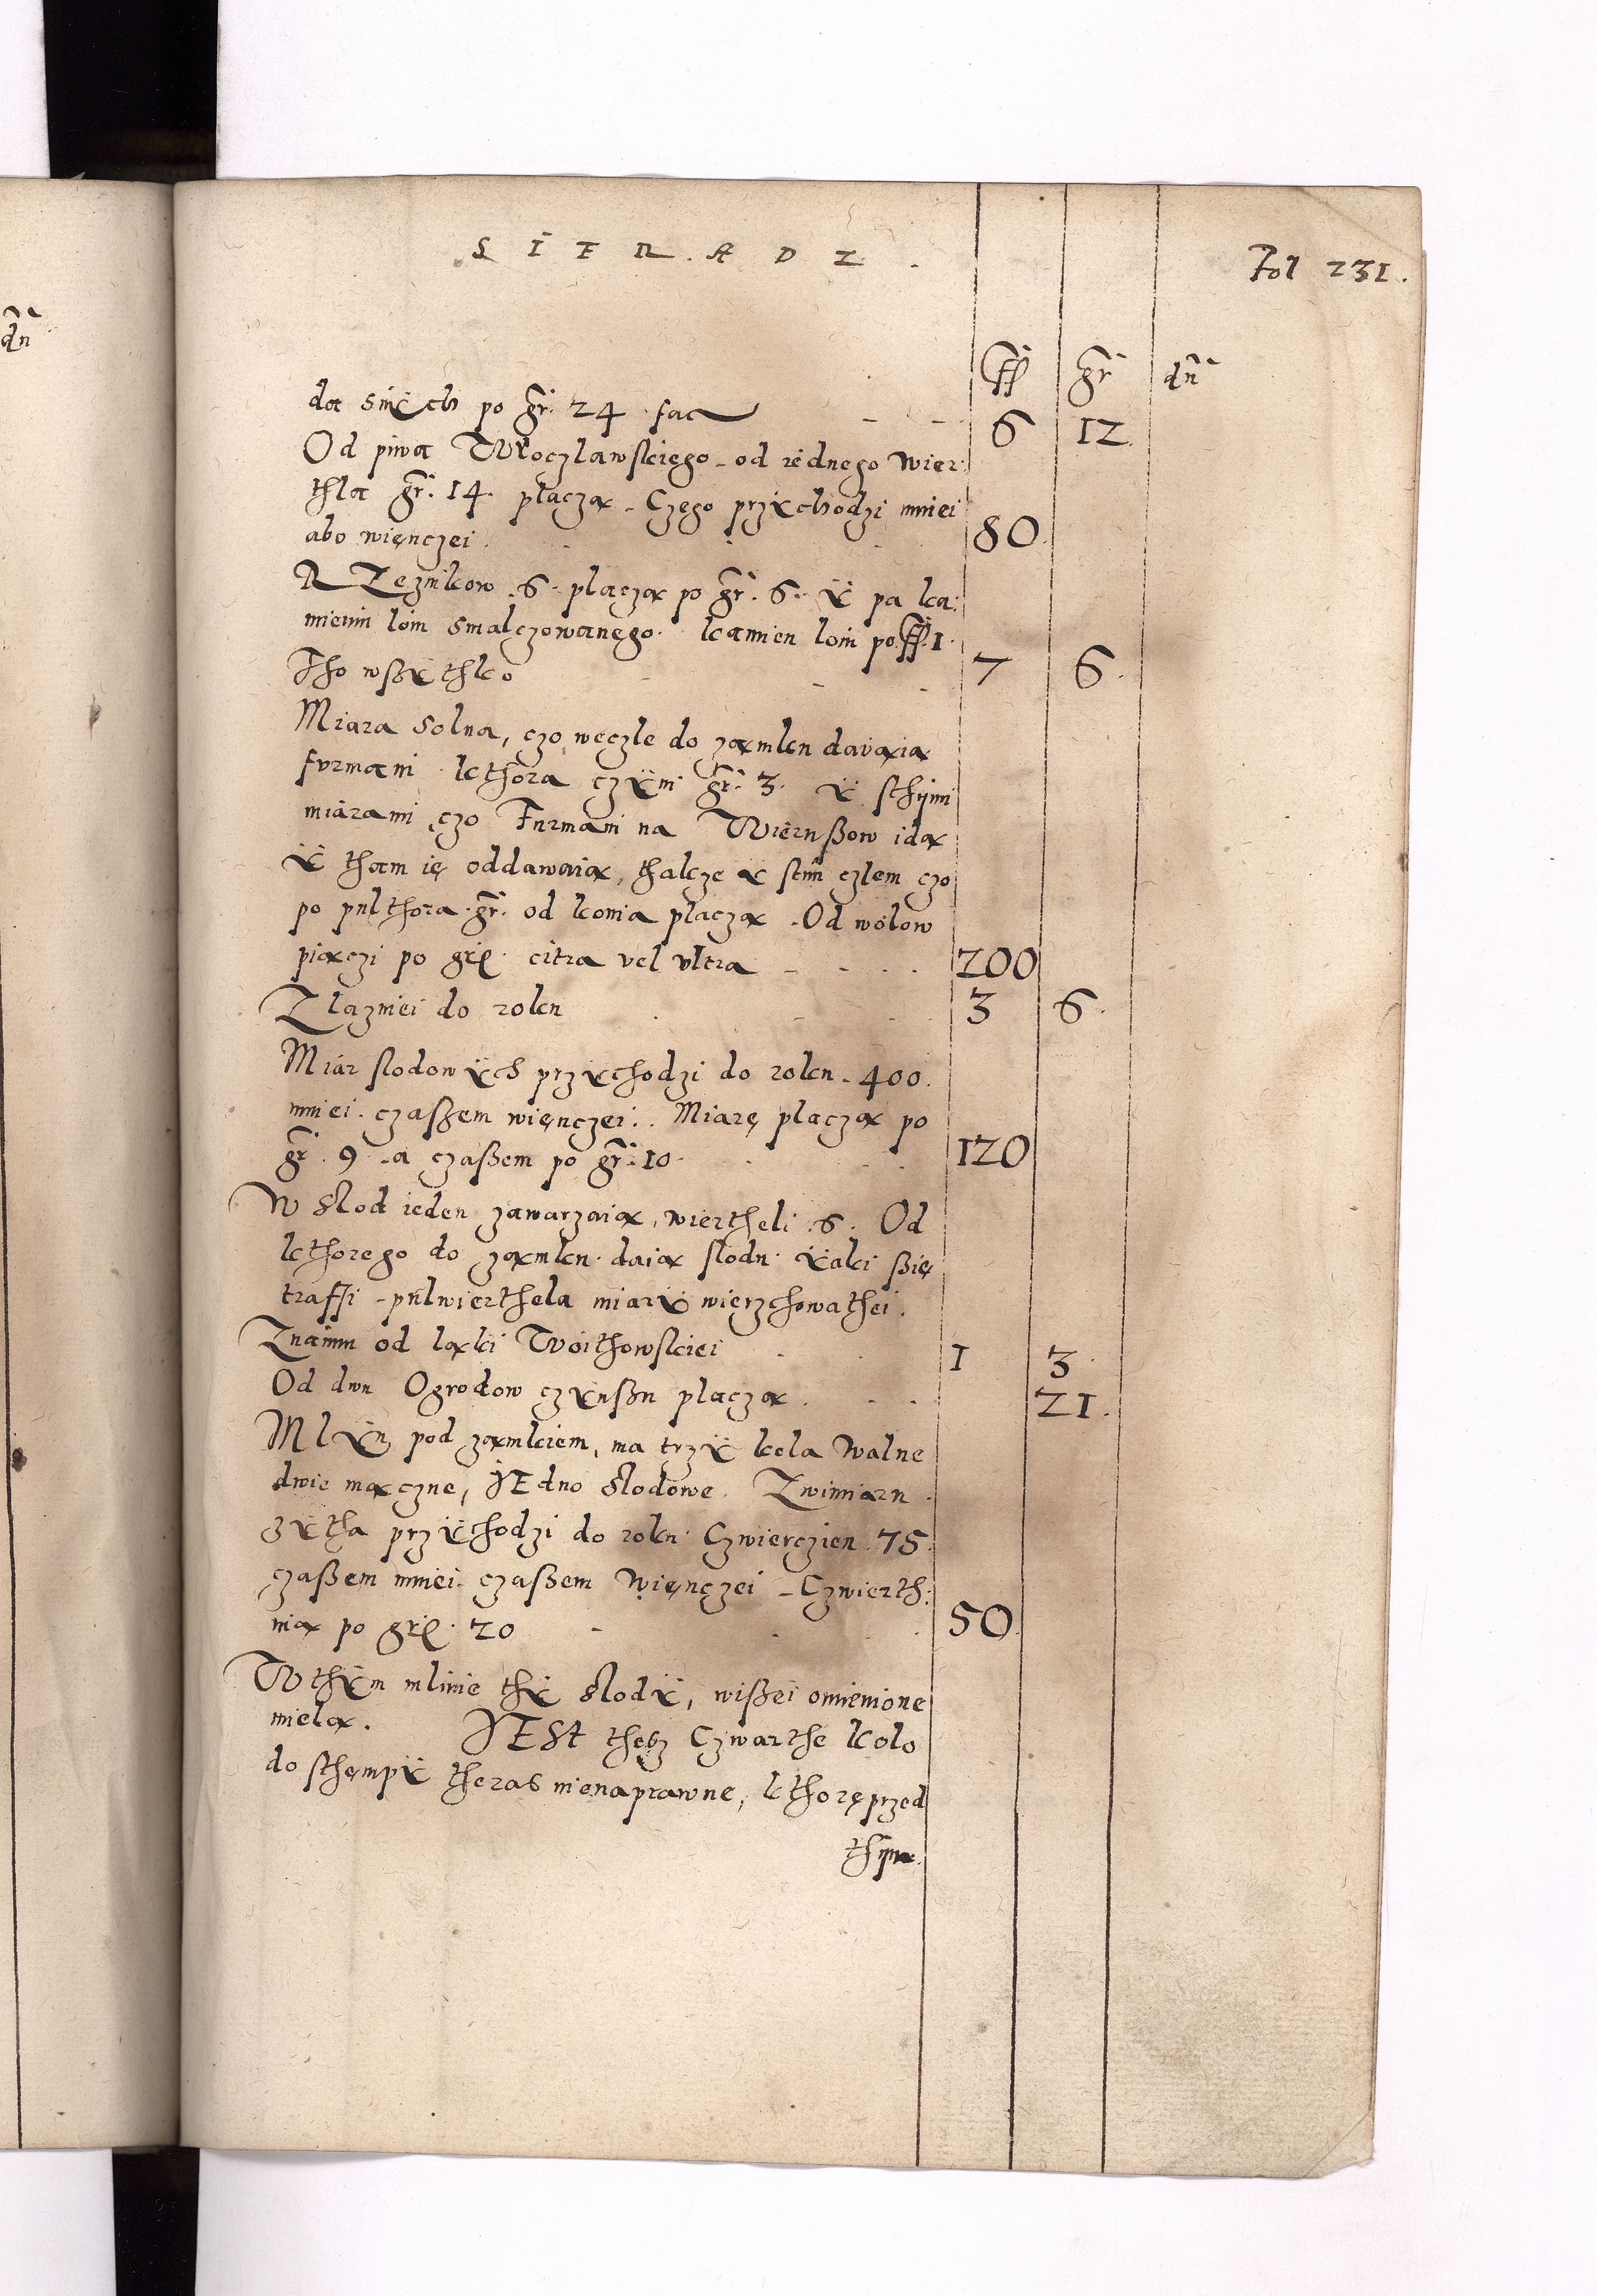 SIERADZ. Fol 231.
dñ
ff gr dñ
da sinÿch po gr. 24 fac - - 6 12
Od piwa Wroczlawskiego - od iednego wier:
thla gr. 14. placzą - Czego przÿchodzi mniei
abo więnczei. 80.
RZeznikow .6. placzą po gr. 6. ÿ pa ka:
mieniu loiu smalczowanego. kamien loiu po ff. 1.
Tho wsÿthko - - - 7 6.
Miara solna, czo węczle do zamku dawaią
furmani kthora czÿni gr. 3. ÿ sthijmi
miarami czo Furmani na Wierußow idą
ÿ tham ię oddawaią, thakze y stim czlem czo
po pulthora gr. od konia placzą - Od wolow
piączi po grß. citra vel vltra - - - 200
Z lazniei do roku - - 3 6.
Miar slodowÿch przÿchodzi do roku - 400.
mniei. czaßem więnczei. Miarę placzą po
gr. 9 - a czaßem po gr. 10. - - 120
W slod ieden zawarzaią, wiertheli .6. Od
kthorego do zamku daią slodu ÿaki ßię
traffi - pulwierthela miarÿ wierzchowathei.
Znamu od ląki Woithowskiei - - 1 3.
Od dwu Ogrodow czÿnßu placzą. - - 21.
MlÿN pod zamkiem, ma trzÿ kola Walne
dwie mączne, JEdno Slodowe. Zwimiaru
zÿtha przÿchodzi do roku Czwierczien. 75.
czaßem mniei. czaßem Więnczei - Czwierth:
nią po grß. 20 - - - 50.
W thÿm mlinie thÿ Slodÿ, wißei omienione
mielą. JESt thesz Czwarthe kolo
do sthęmpÿ theras nienaprawne, kthorę przed
thijm.